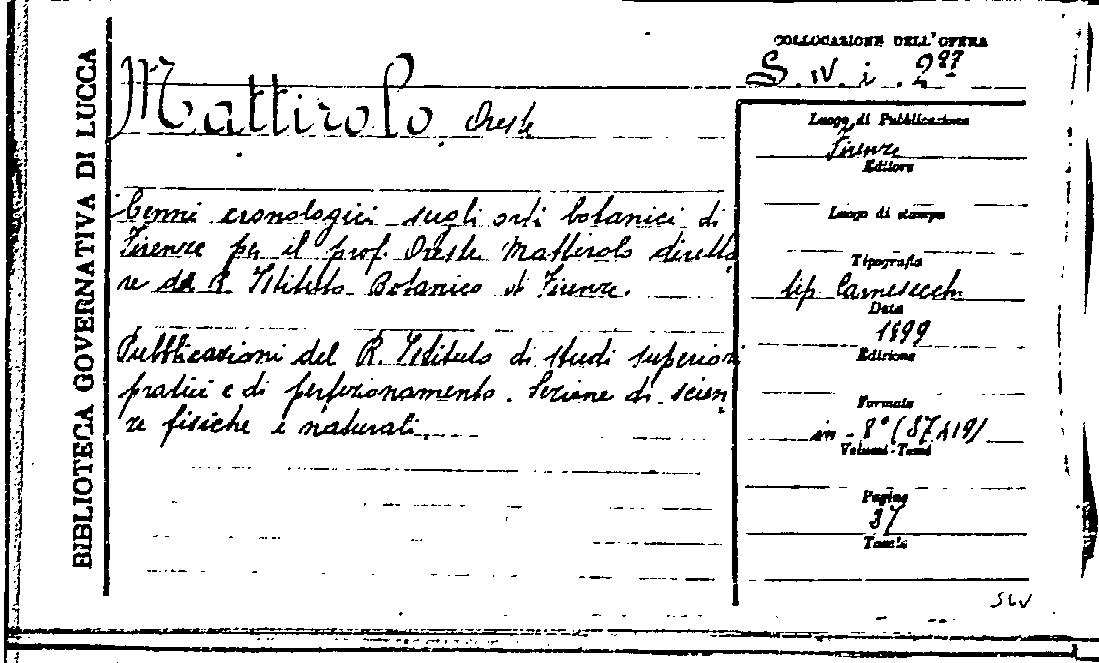 BIBLIOTECA GOVERNATIVA DI LUCCA
COLLOCAZIONE DELL'OPERA
S. IV. i. 287
Mattirolo Oreste
Cenni cronologici sugli orti botanici di
Firenze per il prof. Oreste Mattirolo diretto
re del R. Istituto Botanico di Firenze.
Pubblicazioni del R. Istituto di studi superiori
pratici e di perfezionamento. Sezione di scien
ze fisiche e naturali.
Luogo di Pubblicazione
Firenze
Editore
Luogo di stampa
Tipografia
tip Carnesecchi
Data
1899
Edizione
Formato
in - 8°
Volumi-Tomi
Pagine
37
Tavole